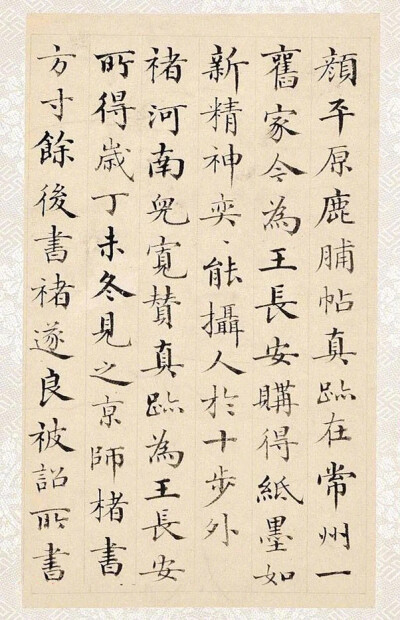 顏平原鹿脯帖真跡在常州一
舊家今為王長安購得紙墨如
新精神奕〻能攝人於十步外
褚河南兒寬贊真跡為王長安
所得歲丁未冬見之京師楮書
方寸餘後書褚遂良被詔所書